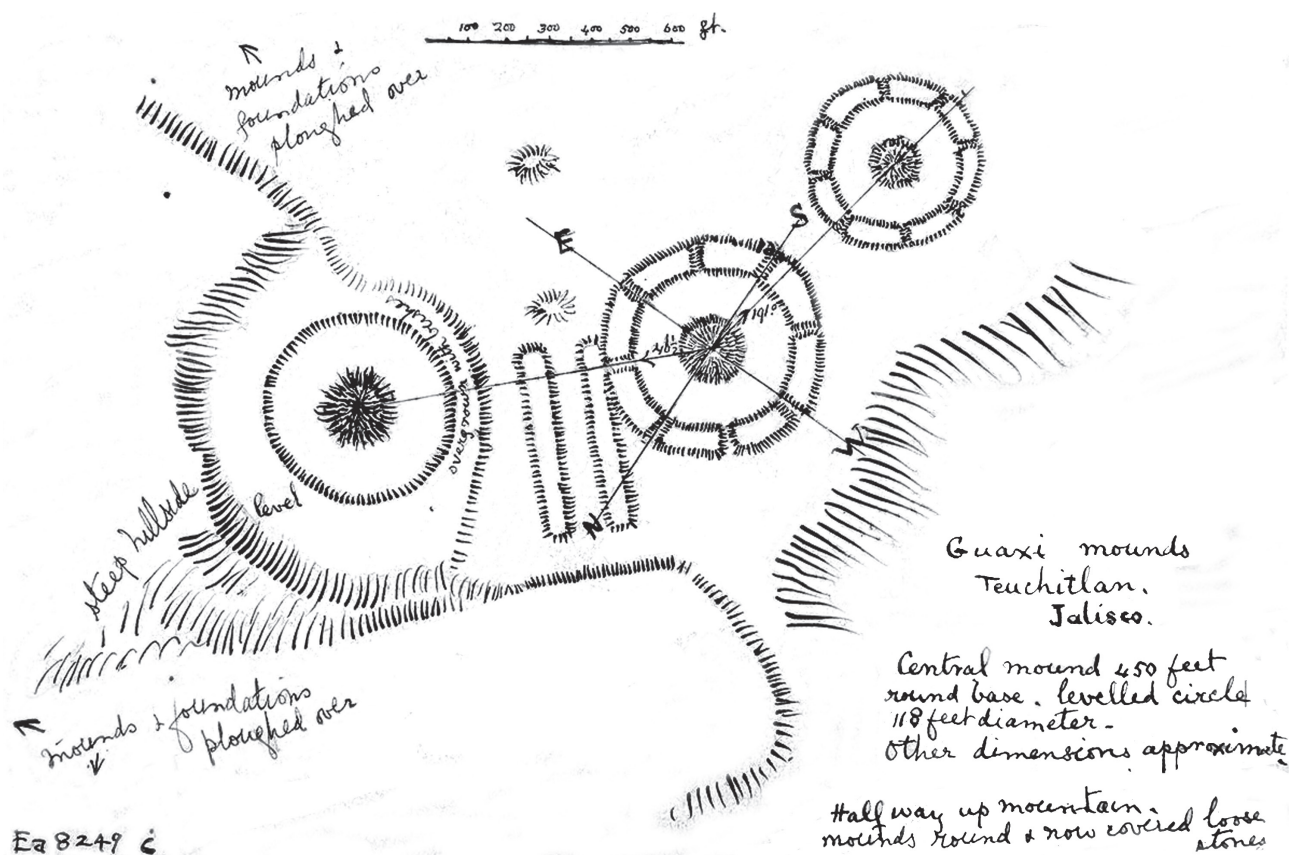 100 200 300 400 500 600 ft.
mounds &
foundations
ploughed over
S
E
W
N
overgrown with bushes
level
steep hillside
mounds & foundations
ploughed over
Guaxi mounds
Teuchitlan.
Jalisco.
Central mound 450 feet
round base. levelled circle
118 feet diameter -
Other dimensions approximate.
Half way up mountain.
mounds round & now covered loose
stones
Ea 8249